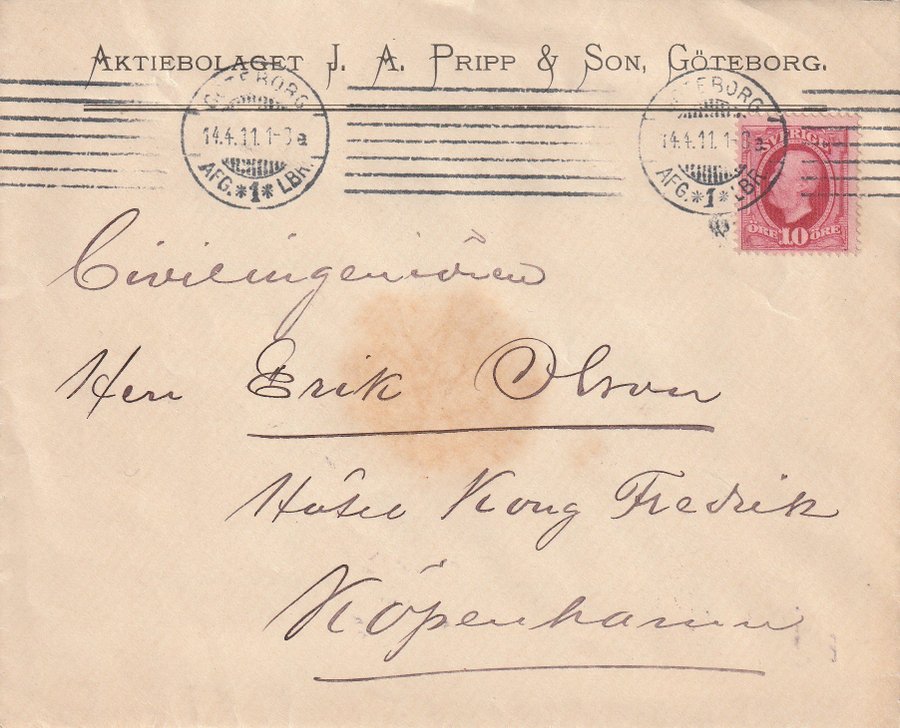 AKTIEBOLAGET J. A. PRIPP & SON, GÖTEBORG.
GÖTEBORG
14.4.11.1-3a
AFG. *1* LBR.
GÖTEBORG
14.4.11.1-3a
AFG. *1* LBR.
SVERIGE
ÖRE 10 ÖRE
Civilingeniören
Herr Erik Olson
Hôtel Kong Fredrik
Köpenhamn